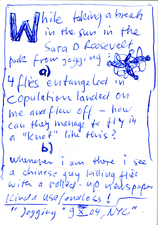 While taking a break
in the sun in the
Sara D Roosevelt
park from jogging
a)
4 flies entangled in
copulation landed on
me and flew off – how
can they manage to fly in
a "knot" like this?
b)
whenever i am there i see
a chinese guy killing flies
with a rolled-up newspaper
Kinda useless/endless!
"Jogging" 9 X 04, NYC"